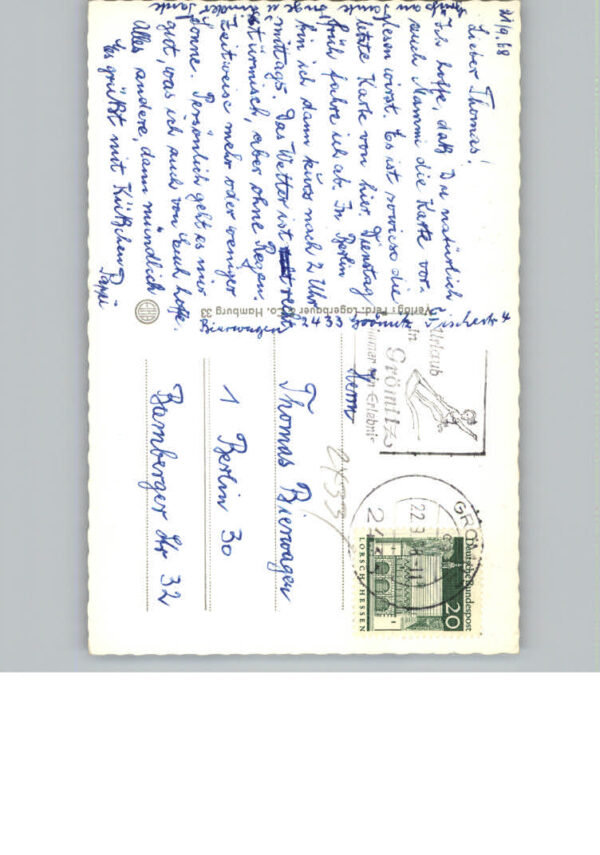 21/9.68
Lieber Thomas!
Ich hoffe, daß Du natürlich
auch Mammi die Karte vor-
lesen wirst. Es ist sowieso die
letzte Karte von hier. Dienstag
früh fahre ich ab. In Berlin
bin ich dann kurz nach 2 Uhr
mittags. Das Wetter ist recht
stürmisch, aber ohne Regen.
Zeitweise mehr oder weniger
Sonne. Persönlich geht es mir
gut, was ich auch von Euch hoffe.
Alles andere, dann mündlich
Es grüßt mit Küßchen Pappi
Bierwagen 2433 Grömitz Fischerstr 4
Verlag: Ferd. Lagerbauer & Co. Hamburg 33
Urlaub
in
Grömitz
immer ein Erlebnis
22.9.
2433
Deutsche Bundespost
20
LORSCH/HESSEN
2433
Herrn
Thomas Bierwagen
1 Berlin 30
Bamberger Str 32